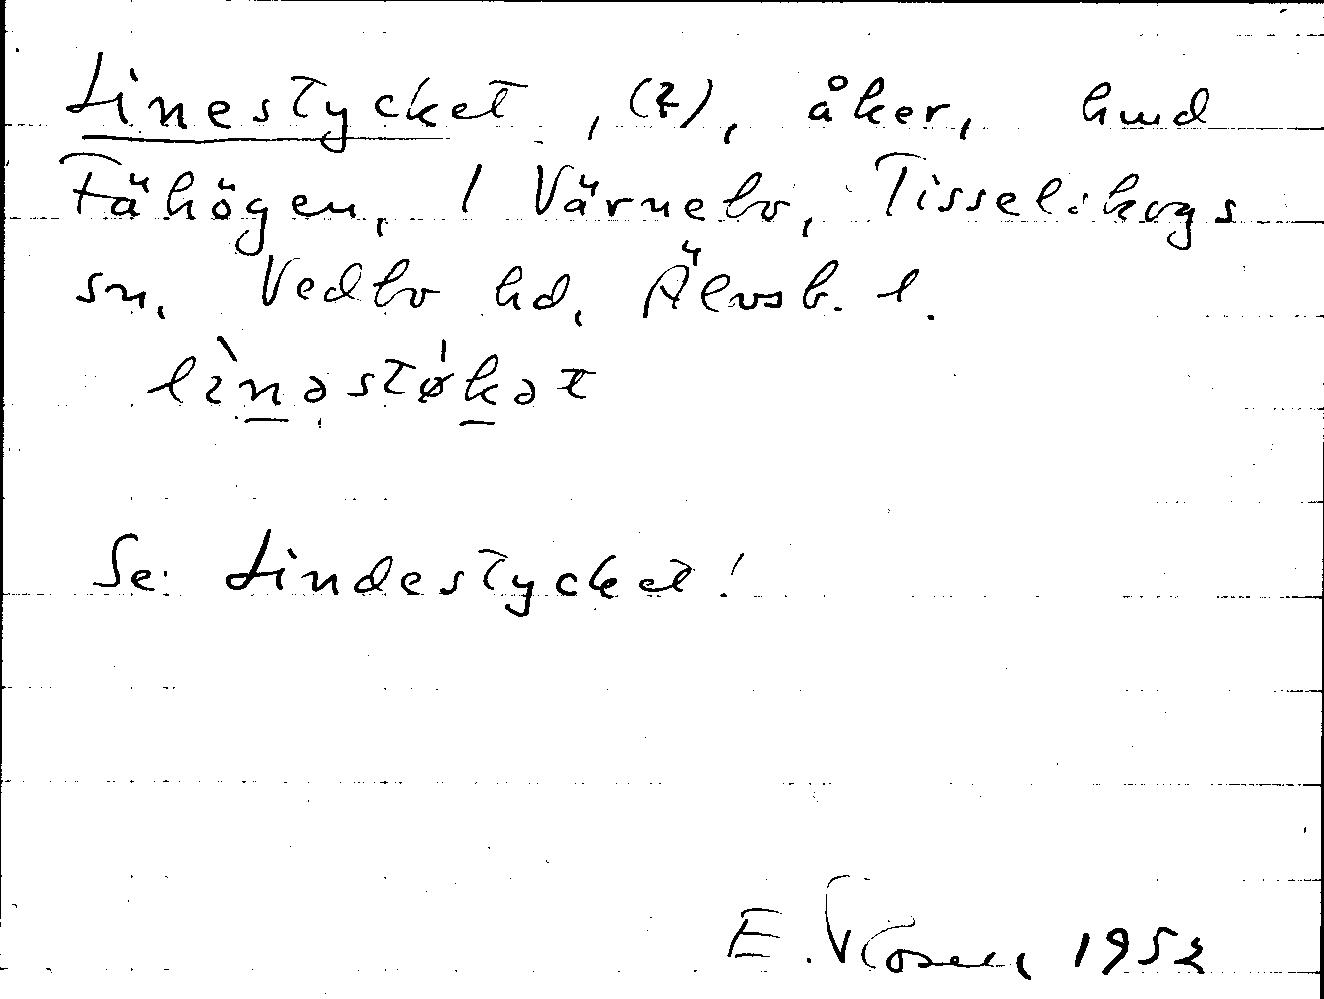 Linestycket, (2), åker, hmd
Fähögen, 1 Värnebo, Tisselskogs
sn, Vedbo hd, Älvsb. l.
lìnəstø̍kət
Se: Lindestycket!
E. 1952